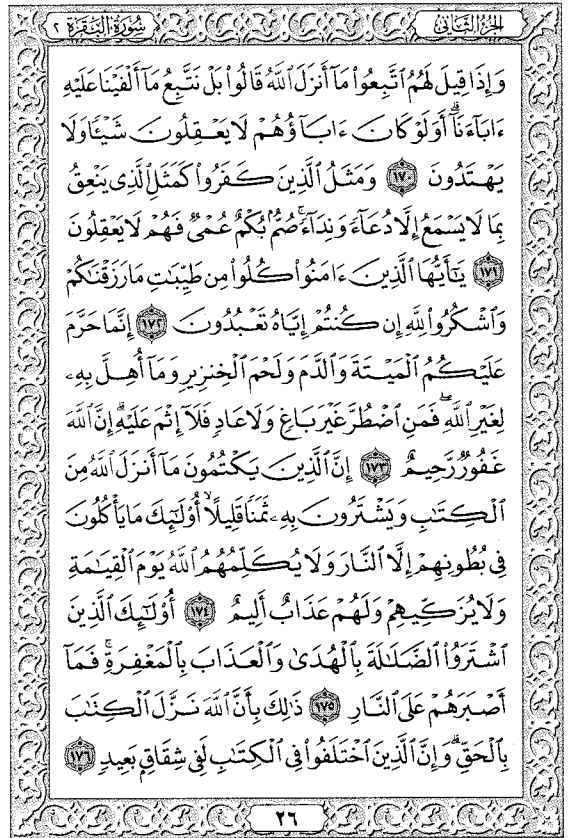 الجزء الثاني
سورة البقرة ٢
وَإِذَا قِيلَ لَهُمُ ٱتَّبِعُوا۟ مَآ أَنزَلَ ٱللَّهُ قَالُوا۟ بَلْ نَتَّبِعُ مَآ أَلْفَيْنَا عَلَيْهِ
ءَابَآءَنَآ ۗ أَوَلَوْ كَانَ ءَابَآؤُهُمْ لَا يَعْقِلُونَ شَيْـًٔا وَلَا
يَهْتَدُونَ ١٧٠ وَمَثَلُ ٱلَّذِينَ كَفَرُوا۟ كَمَثَلِ ٱلَّذِى يَنْعِقُ
بِمَا لَا يَسْمَعُ إِلَّا دُعَآءً وَنِدَآءً ۚ صُمٌّۢ بُكْمٌ عُمْىٌ فَهُمْ لَا يَعْقِلُونَ
١٧١ يَـٰٓأَيُّهَا ٱلَّذِينَ ءَامَنُوا۟ كُلُوا۟ مِن طَيِّبَـٰتِ مَا رَزَقْنَـٰكُمْ
وَٱشْكُرُوا۟ لِلَّهِ إِن كُنتُمْ إِيَّاهُ تَعْبُدُونَ ١٧٢ إِنَّمَا حَرَّمَ
عَلَيْكُمُ ٱلْمَيْتَةَ وَٱلدَّمَ وَلَحْمَ ٱلْخِنزِيرِ وَمَآ أُهِلَّ بِهِۦ
لِغَيْرِ ٱللَّهِ ۖ فَمَنِ ٱضْطُرَّ غَيْرَ بَاغٍ وَلَا عَادٍ فَلَآ إِثْمَ عَلَيْهِ ۚ إِنَّ ٱللَّهَ
غَفُورٌ رَّحِيمٌ ١٧٣ إِنَّ ٱلَّذِينَ يَكْتُمُونَ مَآ أَنزَلَ ٱللَّهُ مِنَ
ٱلْكِتَـٰبِ وَيَشْتَرُونَ بِهِۦ ثَمَنًا قَلِيلًا ۙ أُو۟لَـٰٓئِكَ مَا يَأْكُلُونَ
فِى بُطُونِهِمْ إِلَّا ٱلنَّارَ وَلَا يُكَلِّمُهُمُ ٱللَّهُ يَوْمَ ٱلْقِيَـٰمَةِ
وَلَا يُزَكِّيهِمْ وَلَهُمْ عَذَابٌ أَلِيمٌ ١٧٤ أُو۟لَـٰٓئِكَ ٱلَّذِينَ
ٱشْتَرَوُا۟ ٱلضَّلَـٰلَةَ بِٱلْهُدَىٰ وَٱلْعَذَابَ بِٱلْمَغْفِرَةِ ۚ فَمَآ
أَصْبَرَهُمْ عَلَى ٱلنَّارِ ١٧٥ ذَٰلِكَ بِأَنَّ ٱللَّهَ نَزَّلَ ٱلْكِتَـٰبَ
بِٱلْحَقِّ ۗ وَإِنَّ ٱلَّذِينَ ٱخْتَلَفُوا۟ فِى ٱلْكِتَـٰبِ لَفِى شِقَاقٍۭ بَعِيدٍ ١٧٦
٢٦